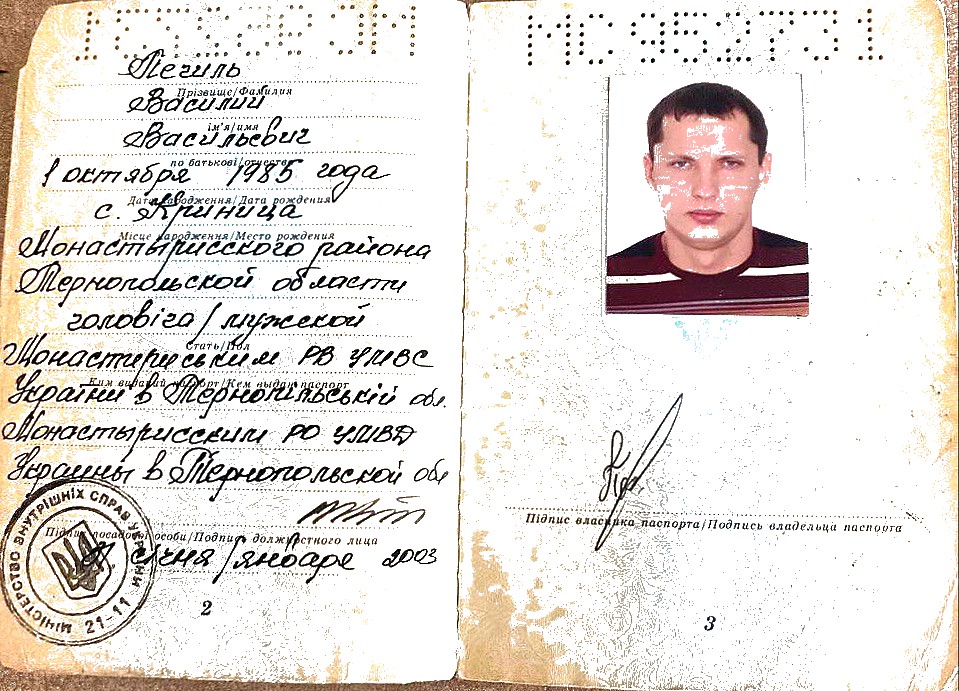 МС 952731
Печиль
Прізвище/Фамилия
Василий
ім'я/имя
Васильевич
по батькові/отчество
1 октября 1985 года
Дата народження/Дата рождения
с. Криница
Місце народження/Место рождения
Монастырисского района
Тернопольской области
чоловіча/мужской
Стать/Пол
Монастириським РВ УМВС
Ким виданий паспорт/Кем выдан паспорт
України в Тернопільській обл.
Монастырисским РО УМВД
Украины в Тернопольской обл
Підпис посадової особи/Подпись должностного лица
січня/январе 2003
МІНІСТЕРСТВО ВНУТРІШНІХ СПРАВ УКРАЇНИ
21-11
2
МС 952731
Підпис власника паспорта/Подпись владельца паспорта
3